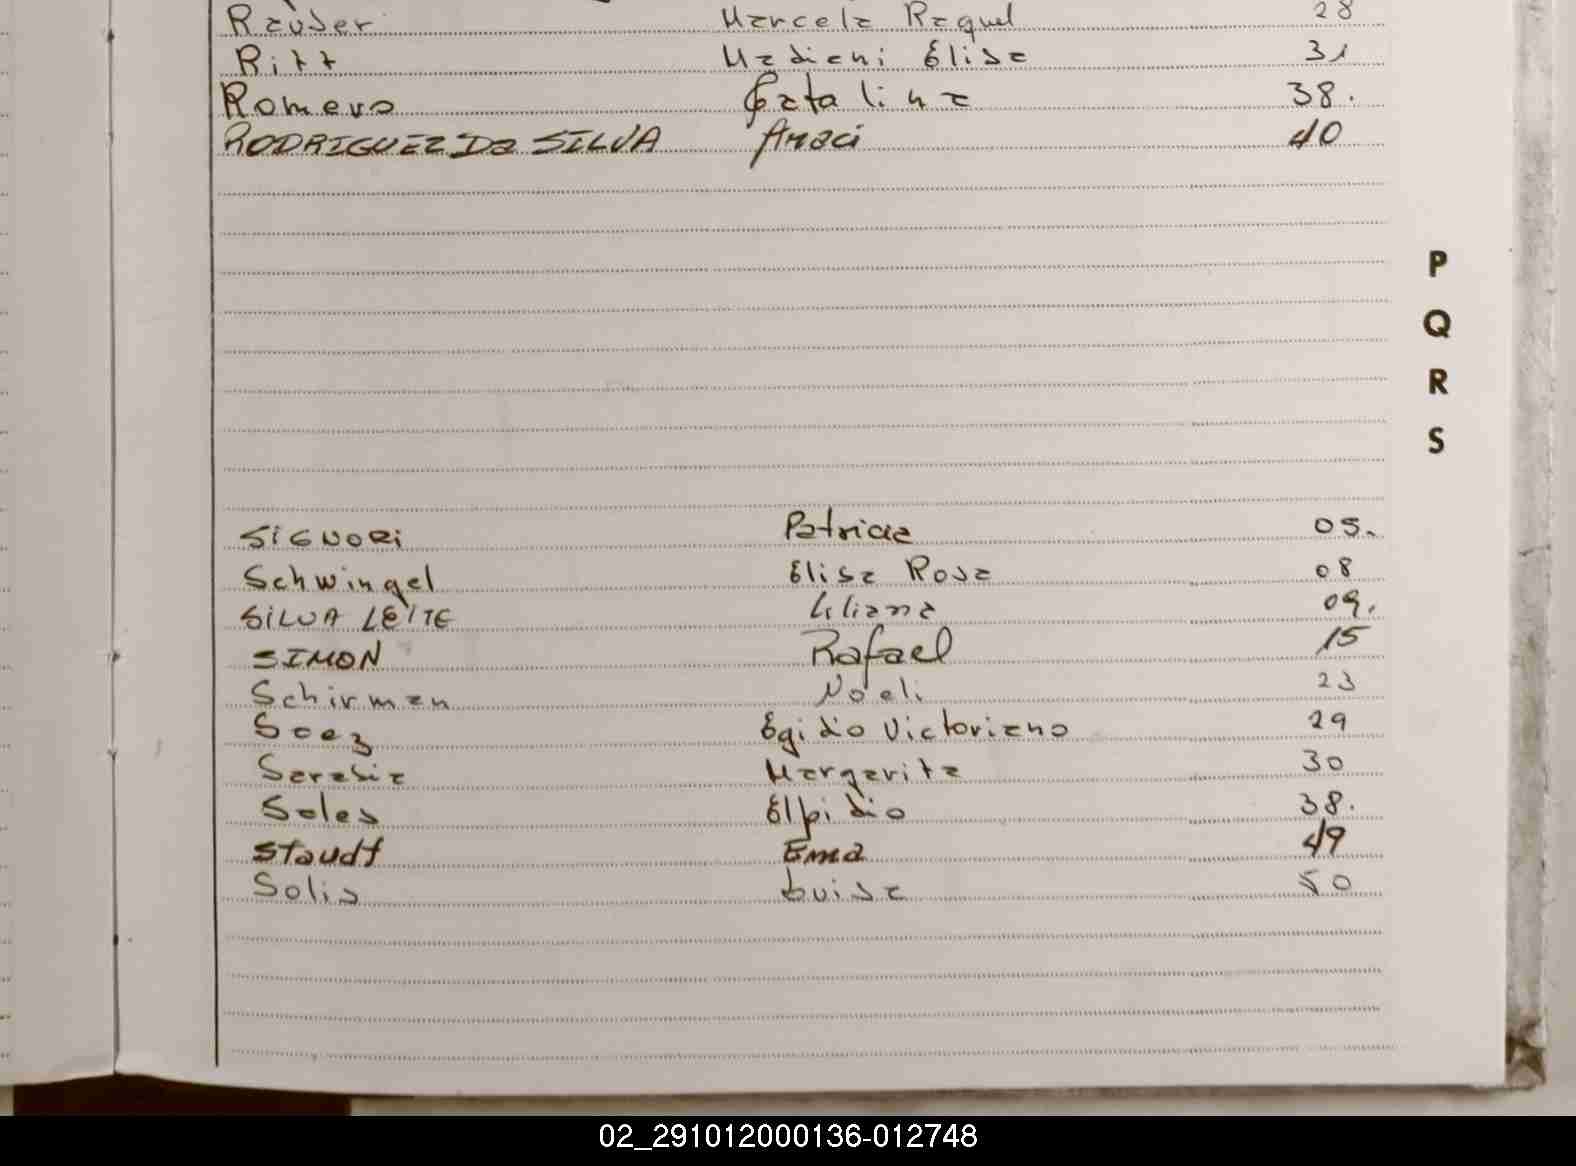 Rauber Marcela Raquel 28
Ritt Madieni Elisa 31
Romero Catalina 38.
RODRIGUEZ Da SILVA Anaci 40
P
Q
R
S
SIGNORi Patricia 05.
Schwingel Elisa Rosa 08
SiLVA LEiTE Liliana 09.
SIMON Rafael 15
Schirman Noeli 23
Soez Egidio Victoriano 29
Sarabia Margarita 30
Soles Elpidio 38.
Staudt Ema 49
Solis Luisa 50
02_291012000136-012748